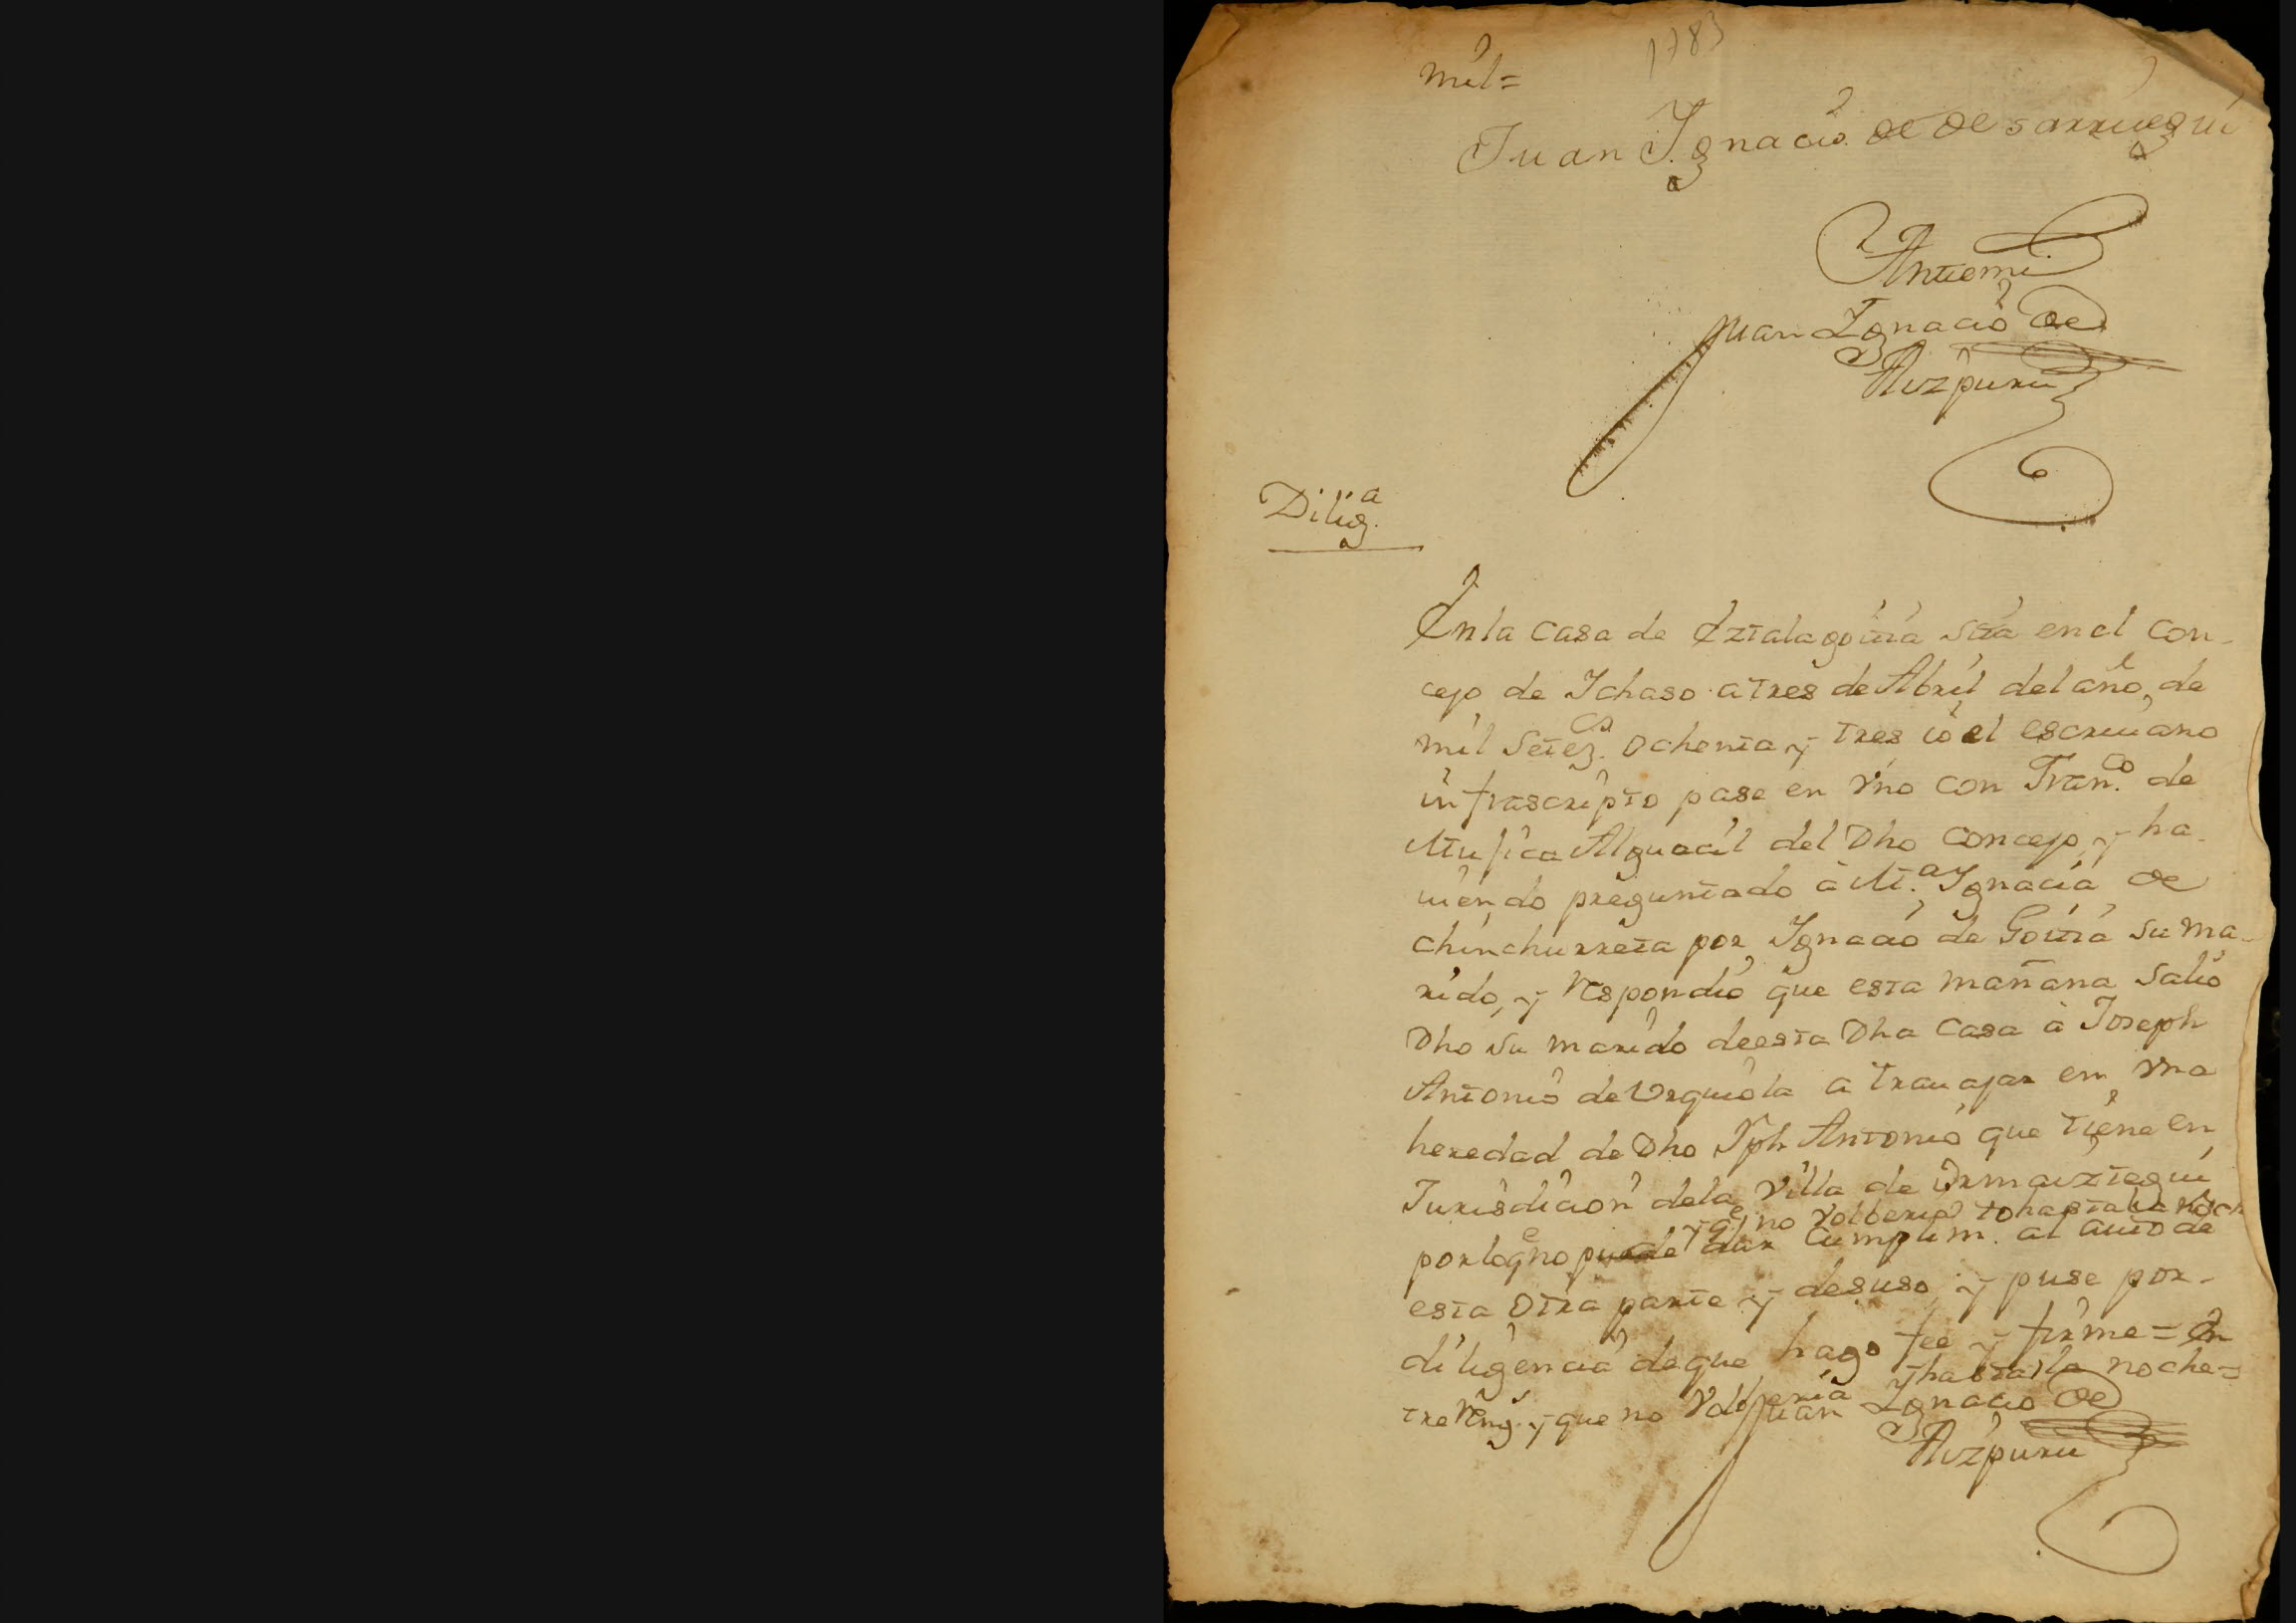 1783
mil=
Juan Ignacio de sarriegui
Antemi
Juan Ignacio de
Aizpuru
Dilig.a
En la Casa de Eztalagoitia sita en el Con-
cejo de Ichaso a tres de Abril del año, de
mil Setez.os ochenta y tres io el escriuano
infrascripto pase en vno con Fran.co de
Mufica Alguacil del Dho Concejo, y ha-
uiendo preguntado à M.a Ignacia de
chinchurreta por Ignacio de Goitia su ma-
rido, y respondio que esta mañana salio
Dho su marido de esta Dha Casa à Joseph
Antonio de Vrquiola a trauajar en vna
heredad de Dho Jph Antonio que tiene en
Jurisdicion dela Villa de Ormaiztegui
y q.e no volberia hasta la noche
por lo q.e no puede dar cumplim.to al auto de
esta otra parte y desuso, y puse por-
diligencia de que hago fee y firme = En
tre reng.s y que no volberia hasta la noche=
Juan Ignacio de
Aizpuru